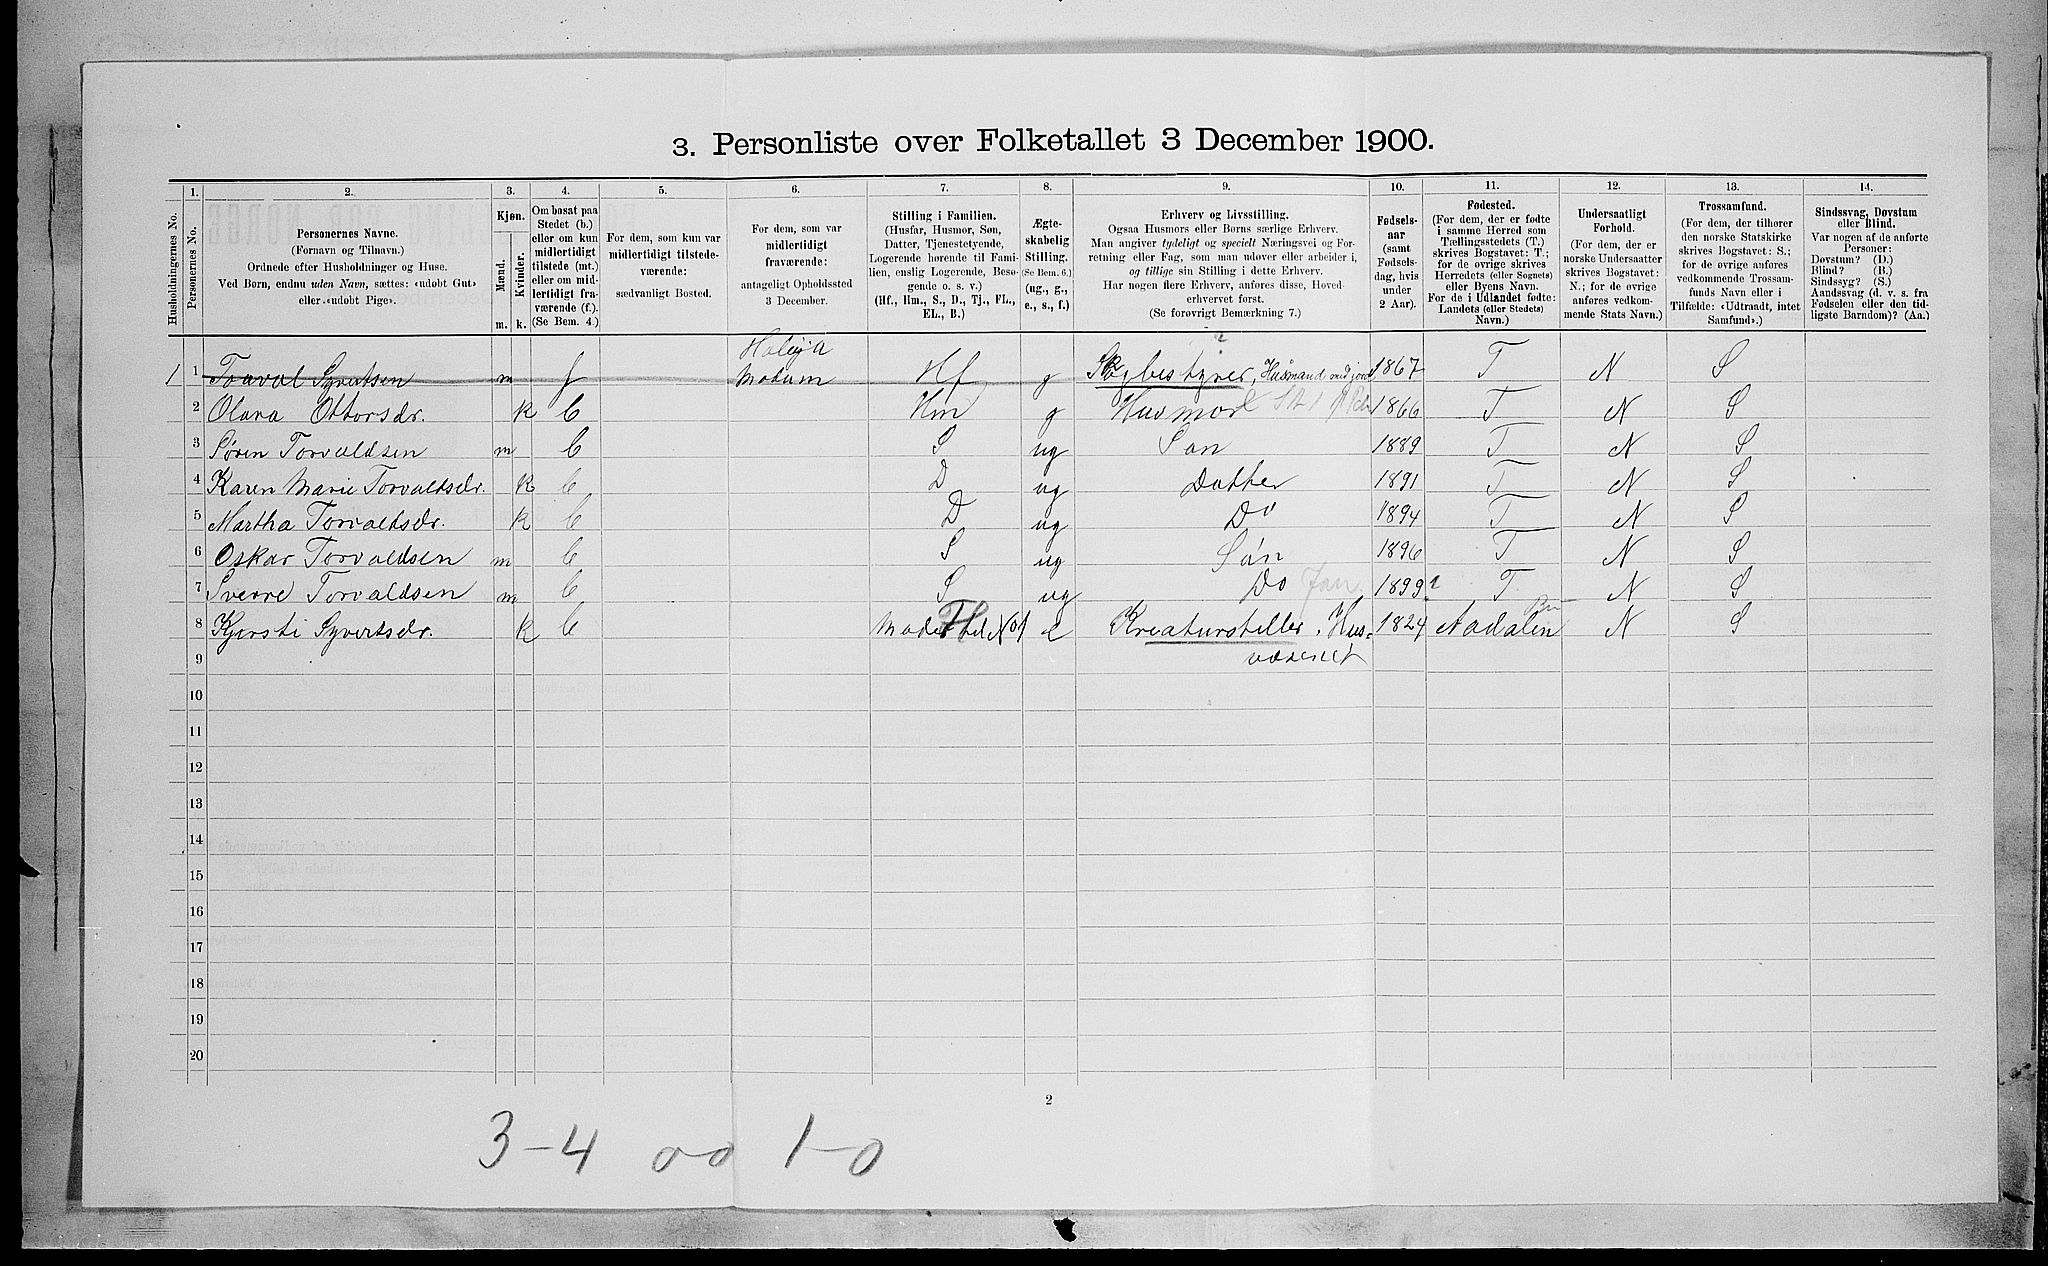 3. Personliste over Folketallet 3 December 1900.
Husholdningernes No.
1.
Personernes No.
2.
Personernes Navne.
(Fornavn og Tilnavn.)
Ordnede efter Husholdninger og Huse.
Ved Børn, endnu uden Navn, sættes: «udøbt Gut»
eller «udøbt Pige».
3.
Kjøn.
Mænd.
Kvinder.
m. k.
4.
Om bosat paa
Stedet (b.)
eller om kun
midlertidigt
tilstede (mt.)
eller om mid-
lertidigt fra-
værende (f.).
(Se Bem. 4.)
5.
For dem, som kun var
midlertidigt tilstede-
værende:
sædvanligt Bosted.
6.
For dem, som var
midlertidigt
fraværende:
antageligt Opholdssted
3 December.
7.
Stilling i Familien.
(Husfar, Husmor, Søn,
Datter, Tjenestetyende,
Logerende hørende til Fami-
lien, enslig Logerende, Besø-
gende o. s. v.)
(Hf., Hm., S., D., Tj., FL.,
EL., B.)
8.
Ægte-
skabelig
Stilling.
(Se Bem. 6.)
(ug., g.,
e., s., f.)
9.
Erhverv og Livsstilling.
Ogsaa Husmors eller Børns særlige Erhverv.
Man angiver tydeligt og specielt Næringsvei og For-
retning eller Fag, som man udøver eller arbeider i,
og tillige sin Stilling i dette Erhverv.
Har nogen flere Erhverv, anføres disse, Hoved-
erhvervet først.
(Se forøvrigt Bemærkning 7.)
10.
Fødsels-
aar
(samt
Fødsels-
dag, hvis
under
2 Aar).
11.
Fødested.
(For dem, der er fødte
i samme Herred som
Tællingsstedets (T.)
skrives Bogstavet: T.;
for de øvrige skrives
Herredets (eller Sognets)
eller Byens Navn.
For de i Udlandet fødte:
Landets (eller Stedets)
Navn.)
12.
Undersaatligt
Forhold.
(For dem, der er
norske Undersaatter
skrives Bogstavet:
N.; for de øvrige
anføres vedkom-
mende Stats Navn.)
13.
Trossamfund.
(For dem, der tilhører
den norske Statskirke
skrives Bogstavet: S.;
for de øvrige anføres
vedkommende Trossam-
funds Navn eller i
Tilfælde: «Udtraadt, intet
Samfund».)
14.
Sindssvag, Døvstum
eller Blind.
Var nogen af de anførte
Personer:
Døvstum? (D.)
Blind? (B.)
Sindssyg? (S.)
Aandssvag (d. v. s. fra
Fødselen eller den tid-
ligste Barndom)? (Aa.)
1 1 Torval Syvertsen m f Modum Hf g Skogbestyrer, Husmand med jord 1867 T N S
2 Olava Ottorsdr. k b Hm g Husmor 1866 T N S
3 Søren Torvaldsen m b S ug Søn 1889 T N S
4 Karen Marie Torvaldsdr. k b D ug Datter 1891 T N S
5 Martha Torvaldsdr. k b D ug Do 1894 T N S
6 Oskar Torvaldsen m b S ug Søn 1896 T N S
7 Sverre Torvaldsen m b S ug Do Jan 1899 ? T N S
8 Kjersti Syvertsdr. k b Moder til No 1 e Kreatursteller, Hus- 1824 Aadalen N S
9 væsenet
10
11
12
13
14
15
16
17
18
19
20
2
3-4 0-0 1-0